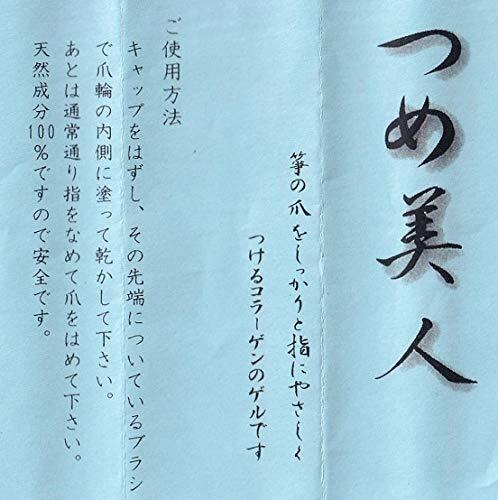 つめ美人
箏の爪をしっかりと指にやさしく
つけるコラーゲンのゲルです
ご使用方法
キャップをはずし、その先端についているブラシ
で爪輪の内側に塗って乾かして下さい。
あとは通常通り指をなめて爪をはめて下さい。
天然成分100%ですので安全です。